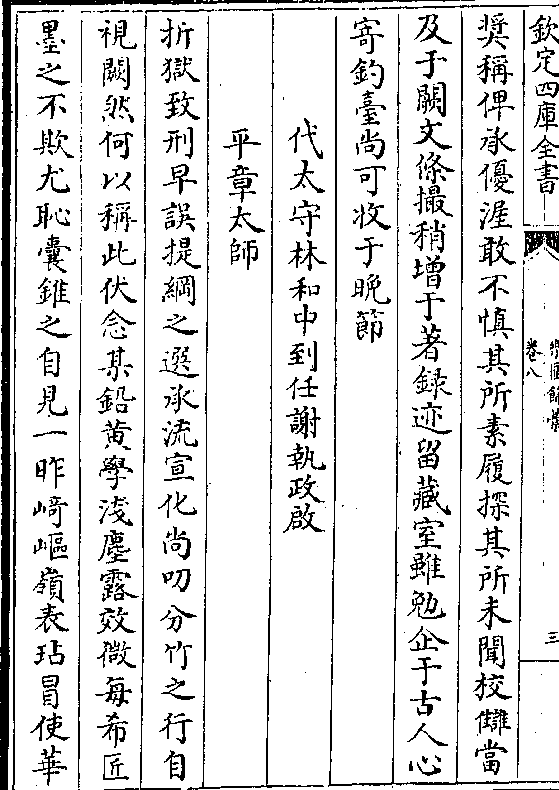 欽定四庫全書
卷八
三
奨稱俾承優渥敢不慎其所素履探其所未聞校讎當
及于闕文條撮稍增于著録迹留藏室雖勉企于古人心
寄釣臺尚可收于晩節
代太守林和中到任謝執政啟
平章太師
折獄致刑早誤提綱之選承流宣化尚叨分竹之行自
視闕然何以稱此伏念某鉛黄學淺塵露效微每希匠
墨之不欺尤恥囊錐之自見一昨﨑嶇嶺表玷冒使華